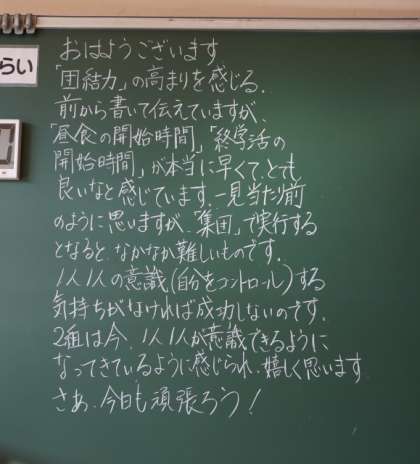 らい
おはようございます
「団結力」の高まりを感じる。
前から書いて伝えていますが、
「昼食の開始時間」「終学活の
開始時間」が本当に早くて、とても
良いなと感じています。一見当たり前
のように思いますが、「集団」で実行する
となると、なかなか難しいものです。
1人1人の意識(自分をコントロール)する
気持ちがなければ成功しないのです。
2組は今、1人1人が意識できるように
なってきているように感じられ、嬉しく思います。
さあ、今日も頑張ろう!